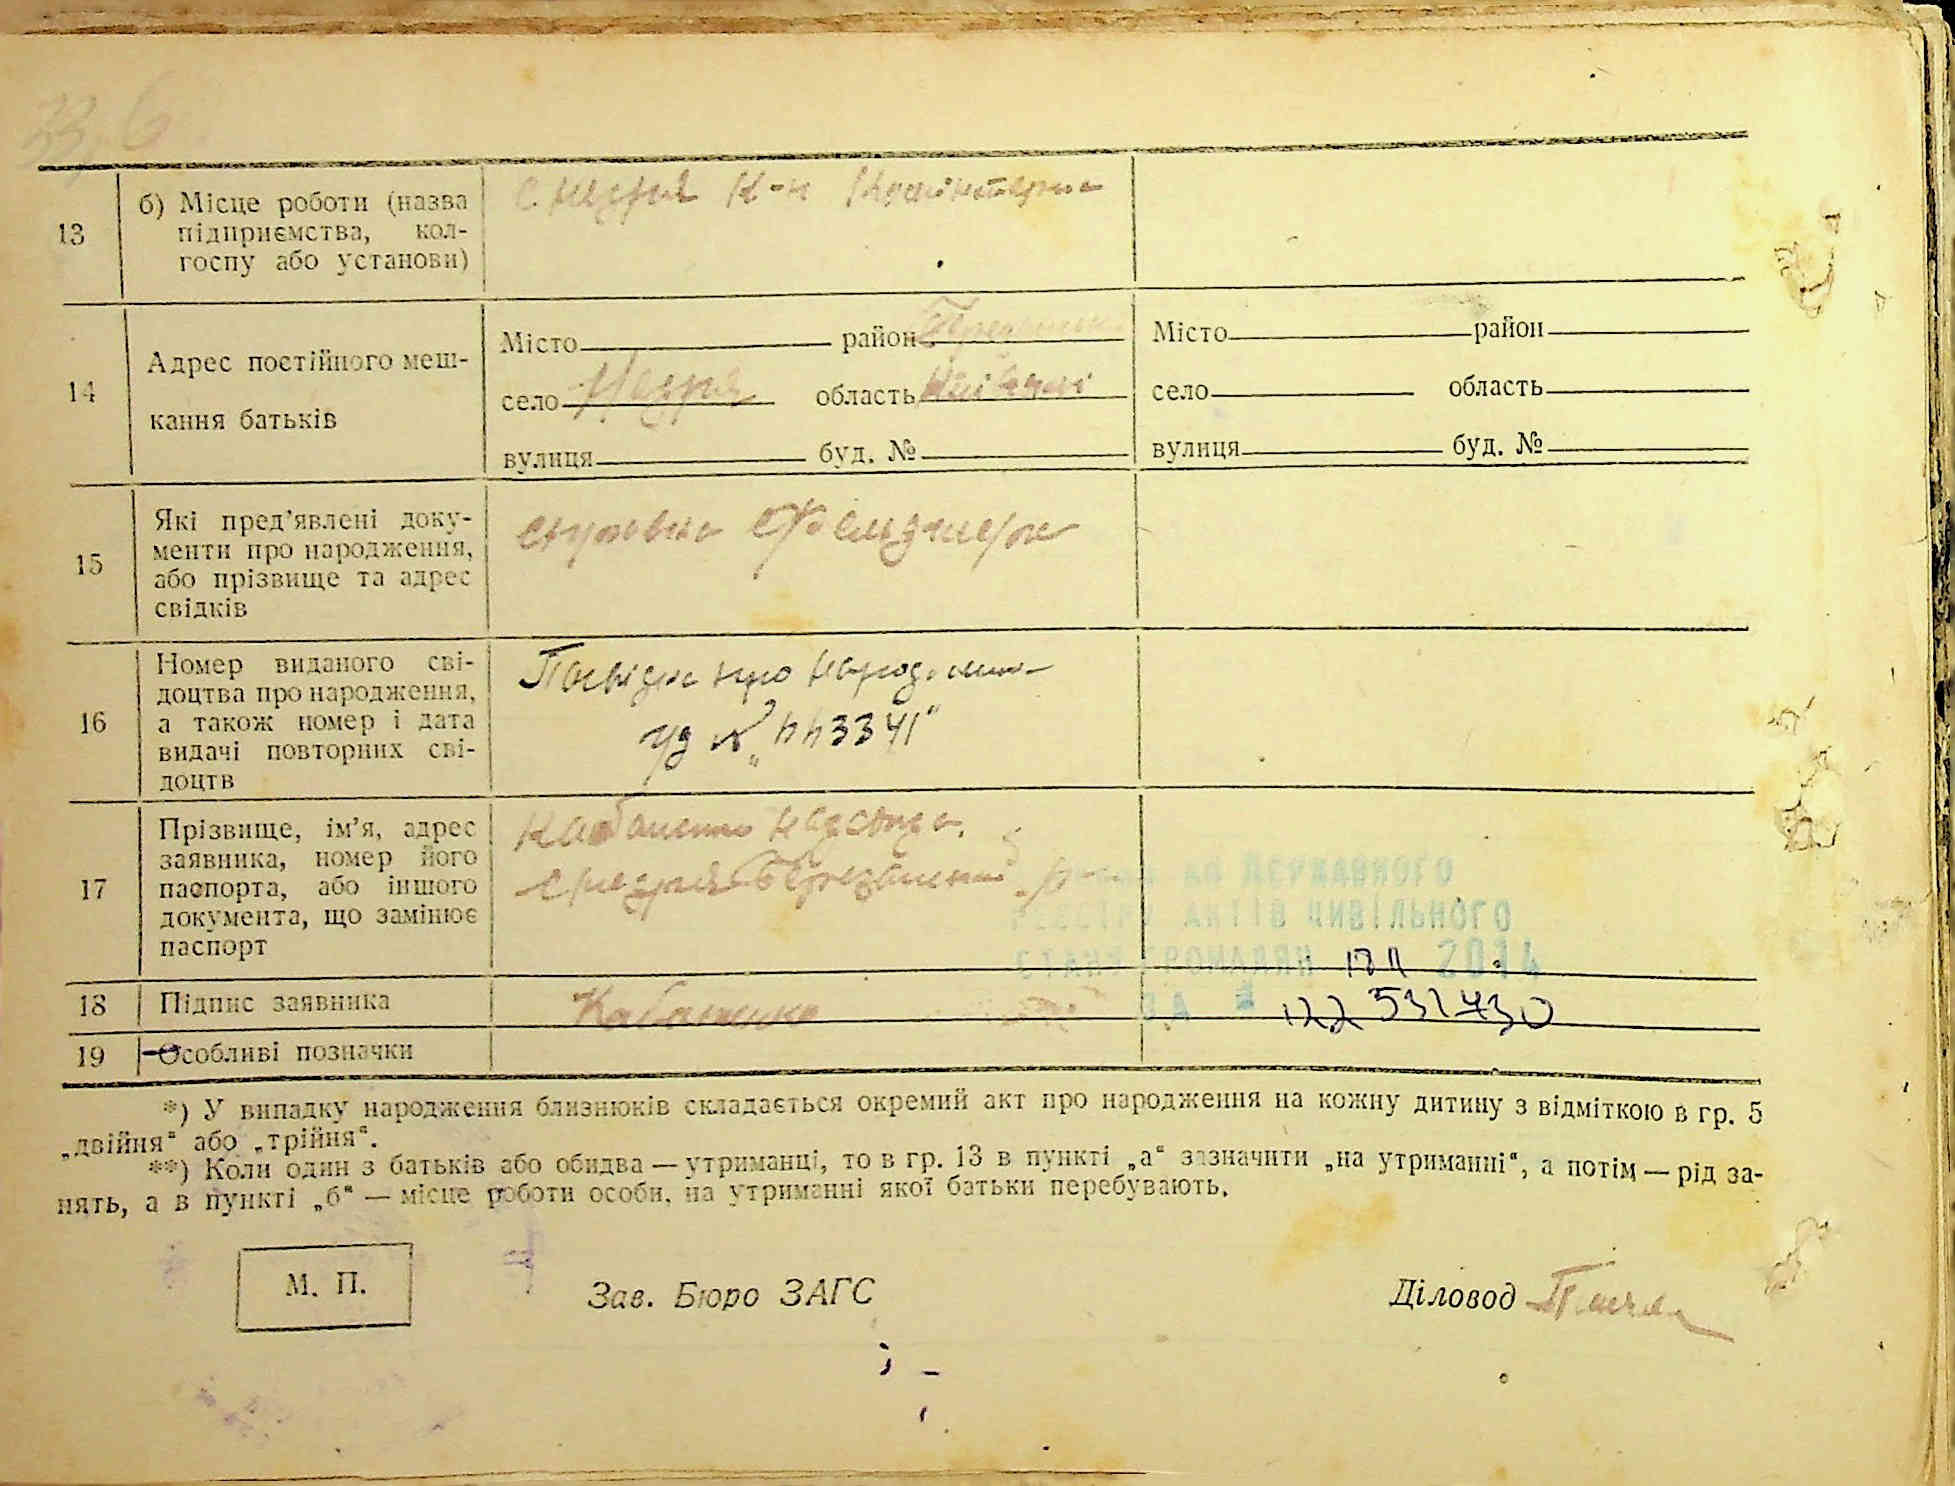 13
б) Місце роботи (назва
підприємства, кол-
госпу або установи)
с. Недра К-п Комінтерна
14
Адрес постійного меш-
кання батьків
Місто район
село Недра область Київської
вулиця буд. №
Місто район
село область
вулиця буд. №
15
Які пред'явлені доку-
менти про народження,
або прізвище та адрес
свідків
справка Фельдшера
16
Номер виданого сві-
доцтва про народження,
а також номер і дата
видачі повторних сві-
доцтв
про
№ „443341"
17
Прізвище, ім'я, адрес
заявника, номер його
паспорта, або іншого
документа, що замінює
паспорт
ДЕРЖАВНОГО
РЕЄСТРУ АКТІВ ЦИВІЛЬНОГО
СТАНУ ГРОМАДЯН 2014
ЗА № 122 532430
18
Підпис заявника
19
Особливі позначки
*) У випадку народження близнюків складається окремий акт про народження на кожну дитину з відміткою в гр. 5
„двійня" або „трійня".
**) Коли один з батьків або обидва — утриманці, то в гр. 13 в пункті „а" зазначити „на утриманні", а потім — рід за-
нять, а в пункті „б" — місце роботи особи, на утриманні якої батьки перебувають.
М. П.
Зав. Бюро ЗАГС
Діловод